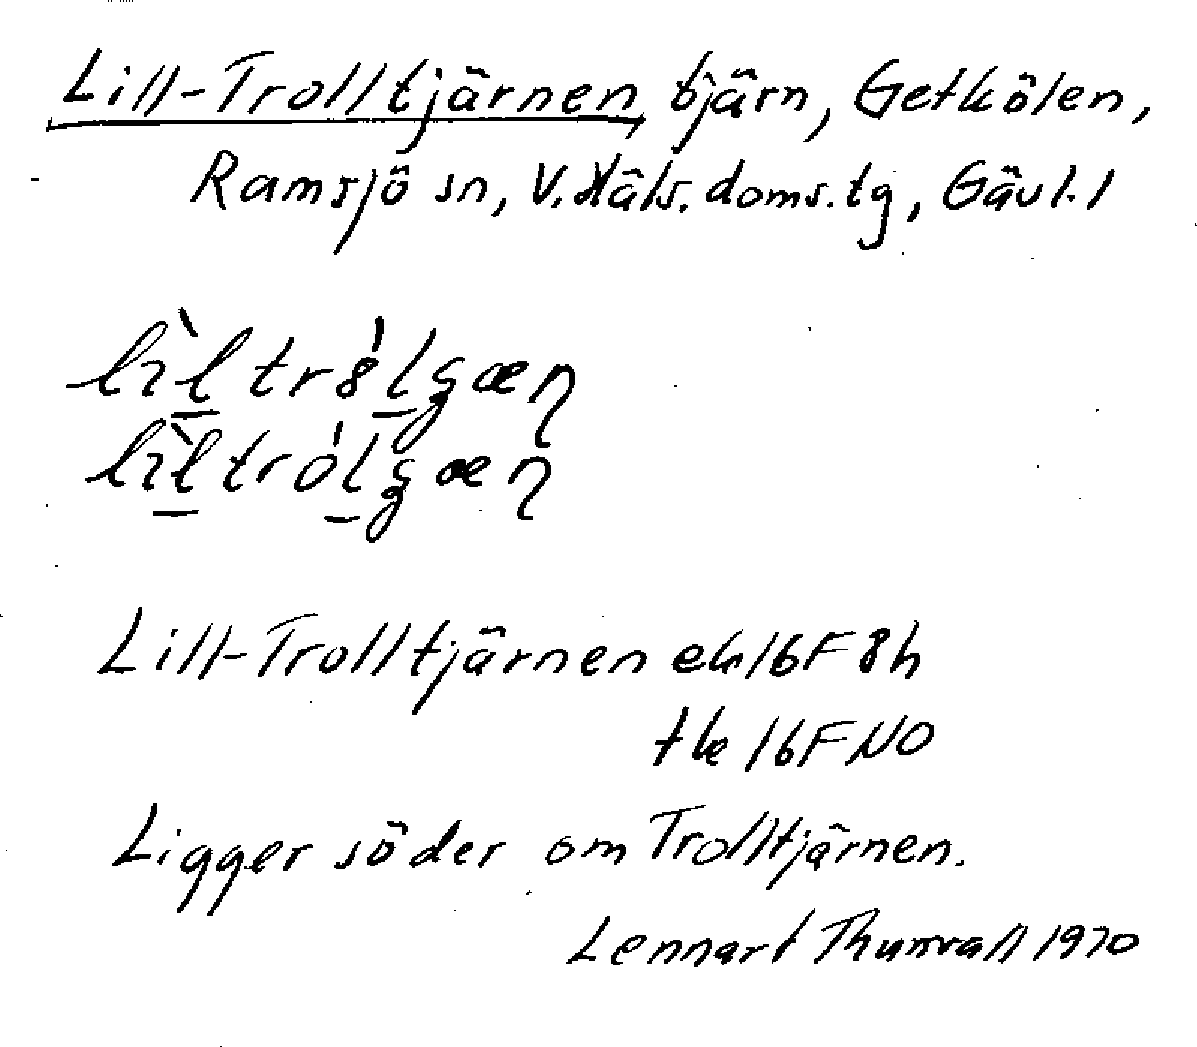 Lill-Trolltjärnen, tjärn, Getkölen,
Ramsjö sn, V. Häls. doms. tg, Gävl. l
Lill-Trolltjärnen ek 16F 8h
tk 16F NO
Ligger söder om Trolltjärnen.
Lennart 1970